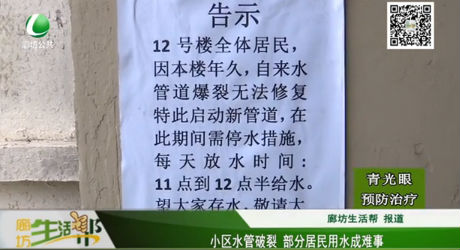 廊坊公共
告示
12号楼全体居民，
因本楼年久，自来水
管道爆裂无法修复
特此启动新管道，在
此期间需停水措施，
每天放水时间：
11点到12点半给水。
望大家存水，敬请大
青光眼
预防治疗
廊坊
生活帮
廊坊生活帮 报道
小区水管破裂 部分居民用水成难事